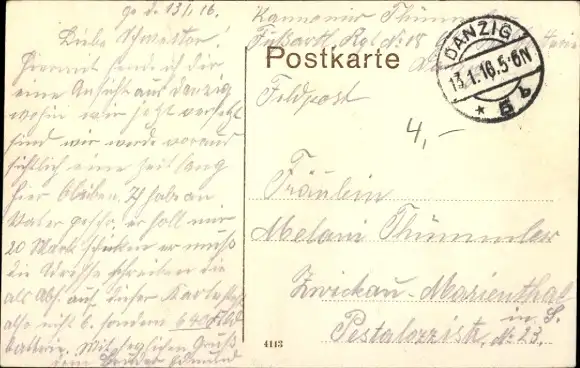 ge d. 13/1. 16.
Liebe Schwester.
Hiermit sende ich dir
eine Ansicht aus Danzig
wohin wir jetzt versetzt
sind wir werde voraus
sichtlich eine zeit lang
hier bleiben. Ich habe an
Vater geschr. er soll mir
20 Mark schicken er muß
die Adresse schreiben die
als Abs. auf dieser Karte steht
also nicht 6. sondern 640
batterie. Mit herzlichen Gruß
dein Bruder Edmund
Kannonier Thümmler
Fußart. Rgt. No 18
Postkarte
Feldpost
DANZIG
13.1.16.5-6N
* 5 b
4,-
Fräulein
Melani Thümmler
Zwickau-Marienthal
in S.
Pestalozzistr. No. 23.
4113